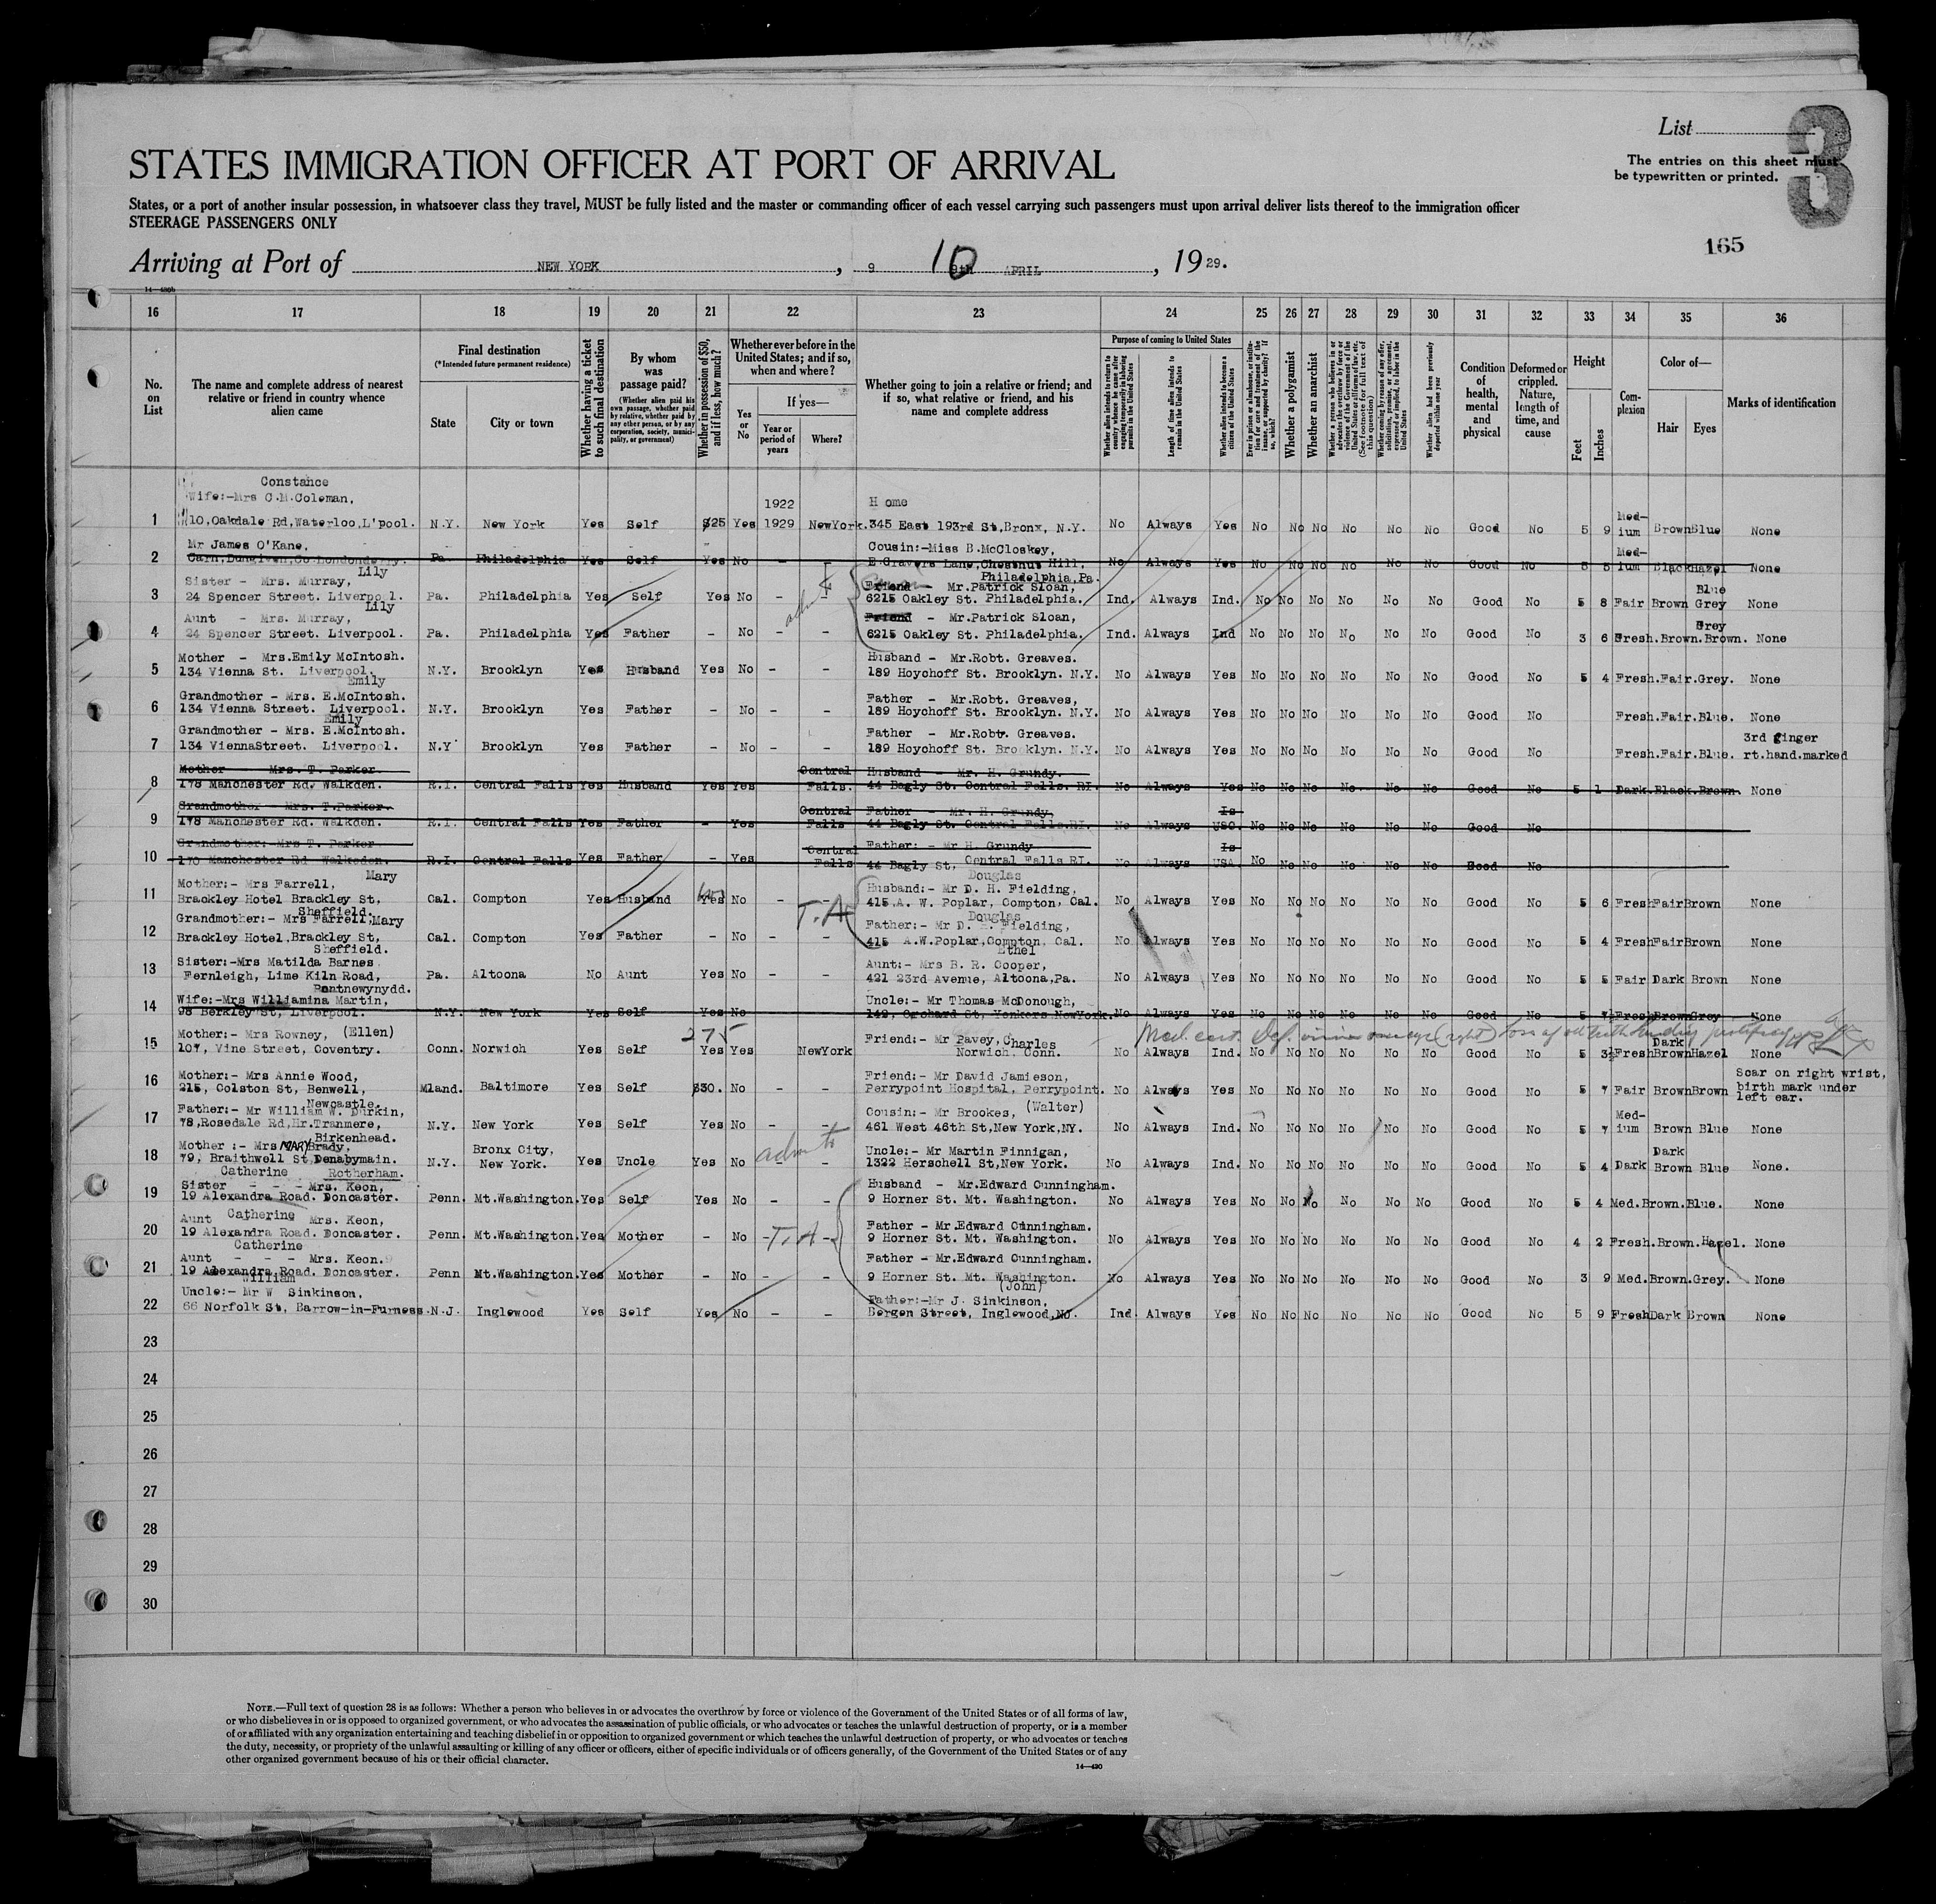 List
3
The entries on this sheet must
be typewritten or printed.
STATES IMMIGRATION OFFICER AT PORT OF ARRIVAL
States, or a port of another insular possession, in whatsoever class they travel, MUST be fully listed and the master or commanding officer of each vessel carrying such passengers must upon arrival deliver lists thereof to the immigration officer
STEERAGE PASSENGERS ONLY
165
Arriving at Port of NEW YORK, 9 10 9th APRIL, 1929.
16 17 18 19 20 21 22 23 24 25 26 27 28 29 30 31 32 33 34 35 36
No. on List
The name and complete address of nearest relative or friend in country whence alien came
Final destination
(*Intended future permanent residence)
State
City or town
Whether having a ticket to such final destination
By whom was passage paid?
(Whether alien paid his own passage, whether paid by relative, whether paid by any other person, or by any corporation, society, municipality, or government)
Whether in possession of $50, and if less, how much?
Whether ever before in the United States; and if so, when and where?
Yes or No
If yes—
Year or period of years
Where?
Whether going to join a relative or friend; and if so, what relative or friend, and his name and complete address
Purpose of coming to United States
Whether alien intends to return to country whence he came after engaging temporarily in laboring pursuits in the United States
Length of time alien intends to remain in the United States
Whether alien intends to become a citizen of the United States
Whether a polygamist
Whether an anarchist
(See footnote for full text of this question)
Whether alien had been previously deported within one year
Condition of health, mental and physical
Deformed or crippled. Nature, length of time, and cause
Height
Feet
Inches
Complexion
Color of—
Hair
Eyes
Marks of identification
Constance
Wife:-Mrs C.M.Coleman, 1922 Home
1 10,Oakdale Rd,Waterloo,L'pool. N.Y. New York Yes Self $25 Yes 1929 NewYork. 345 East 193rd St,Bronx, N.Y. No Always Yes No No No No No No Good No 5 9 Med-ium Brown Blue None
Mr James O'Kane, Cousin:-Miss B.McCloskey,
2 Carn,Dungiven,Co Londonderry. Pa. Philadelphia Yes Self Yes No - - E Gravers Lane,Chestnut Hill, No Always Yes No No No No No No Good No 5 5 Med-ium Black Hazel None
Lily Philadelphia,Pa.
Sister - Mrs. Murray, Friend - Mr.Patrick Sloan, Blue
3 24 Spencer Street. Liverpool. Pa. Philadelphia Yes Self Yes No - - 6215 Oakley St. Philadelphia. Ind. Always Ind. No No No No No No Good No 5 8 Fair Brown Grey None
Lily
Aunt - Mrs. Murray, Friend - Mr.Patrick Sloan, Grey
4 24 Spencer Street. Liverpool. Pa. Philadelphia Yes Father - No - - 6215 Oakley St. Philadelphia. Ind. Always Ind No No No No No No Good No 3 6 Fresh.Brown.Brown. None
Mother - Mrs.Emily McIntosh. Husband - Mr.Robt. Greaves.
5 134 Vienna St. Liverpool. N.Y. Brooklyn Yes Husband Yes No - - 189 Hoychoff St. Brooklyn. N.Y. No Always Yes No No No No No No Good No 5 4 Fresh.Fair.Grey. None
Emily
Grandmother - Mrs. E.McIntosh. Father - Mr.Robt. Greaves,
6 134 Vienna Street. Liverpool. N.Y. Brooklyn Yes Father - No - - 189 Hoychoff St. Brooklyn. N.Y. No Always Yes No No No No No No Good No Fresh.Fair.Blue. None
Emily
Grandmother - Mrs. E.McIntosh. Father - Mr.Robt. Greaves. 3rd ginger
7 134 ViennaStreet. Liverpool. N.Y Brooklyn Yes Father - No - - 189 Hoychoff St. Brooklyn. N.Y. No Always Yes No No No No No No Good No Fresh.Fair.Blue. rt.hand.marked
Mother - Mrs. T. Parker Central Husband - Mr. H. Grundy.
8 178 Manchester Rd. Walkden. R.I. Central Falls Yes Husband Yes Yes Falls. 44 Bagly St. Central Falls. RI. No Always Yes No No No No No No Good No 5 1 Dark.Black.Brown. None
Grandmother - Mrs. T.Parker. Central Father - Mr. H. Grundy, Is
9 178 Manchester Rd. Walkden. R.I. Central Falls Yes Father - Yes Falls 44 Bagly St. Central Falls.RI. No Always USC. No No No No No No Good No
Grandmother:-Mrs T. Parker Central Father:- Mr H. Grundy Is
10 178 Manchester Rd Walkeden. R.I. Central Falls Yes Father - Yes Falls 44 Bagly St, Central Falls RI. No Always USA No No No No No No Good No
Mary Douglas
Mother:- Mrs Farrell, Husband:- Mr D. H. Fielding,
11 Brackley Hotel Brackley St, Cal. Compton Yes Husband Yes No - - T.A 415,A. W. Poplar, Compton, Cal. No Always Yes No No No No No No Good No 5 6 Fresh Fair Brown None
Sheffield. Douglas
Grandmother:- Mrs Farrell,Mary Father:- Mr D. H. Fielding,
12 Brackley Hotel,Brackley St, Cal. Compton Yes Father - No - - 415 A.W.Poplar,Compton, Cal. No Always Yes No No No No No No Good No 5 4 Fresh Fair Brown None
Sheffield. Ethel
Sister:-Mrs Matilda Barnes Aunt:- Mrs B. R. Cooper,
13 Fernleigh, Lime Kiln Road, Pa. Altoona No Aunt Yes No - - 421 23rd Avenue, Altoona,Pa. No Always Yes No No No No No No Good No 5 5 Fair Dark Brown None
Pontnewynydd.
Wife:-Mrs Williamina Martin, Uncle:- Mr Thomas McDonough,
14 98 Berkley St, Liverpool. N.Y. New York Yes Self Yes No 142, Orchard St, Yonkers NewYork. No Always Yes No No No No No No Good No 5 7½ Fresh Brown Grey None
Mother:- Mrs Rowney, (Ellen) 275 Friend:- Mr Pavey, Charles Med. cert. Def. vision one eye (right) Loss of all teeth Dark
15 107, Vine Street, Coventry. Conn. Norwich Yes Self Yes Yes NewYork Norwich, Conn. No Always Ind. No No No No No No Good No 5 3½ Fresh Brown Hazel None
Mother:- Mrs Annie Wood, Friend:- Mr David Jamieson, Scar on right wrist,
16 215, Colston St, Benwell, Mland. Baltimore Yes Self $30. No - - Perrypoint Hospital, Perrypoint. No Always Yes No No No No No No Good No 5 7 Fair Brown Brown birth mark under
Newcastle. left ear.
Father:- Mr William W. Durkin, Cousin:- Mr Brookes, (Walter)
17 78,Rosedale Rd,Hr.Tranmere, N.Y. New York Yes Self Yes No - - 461 West 46th St,New York,NY. No Always Ind. No No No No No No Good No 5 7 Med-ium Brown Blue None
Birkenhead.
Mother :- Mrs MARY Brady, Bronx City, Uncle:- Mr Martin Finnigan, Dark
18 79, Braithwell St,Denabymain. N.Y. New York. Yes Uncle Yes No - - admit 1322 Herschell St,New York. No Always Ind. No No No No No No Good No 5 4 Dark Brown Blue None.
Catherine Rotherham.
Sister - - - Mrs. Keon, Husband - Mr.Edward Cunningham.
19 19 Alexandra Road. Doncaster. Penn. Mt.Washington. Yes Self Yes No - - 9 Horner St. Mt. Washington. No Always Yes No No No No No No Good No 5 4 Med.Brown.Blue. None
Catherine
Aunt Mrs. Keon, Father - Mr.Edward Cunningham.
20 19 Alexandra Road. Doncaster. Penn. Mt.Washington. Yes Mother - No - T.A - 9 Horner St. Mt. Washington. No Always Yes No No No No No No Good No 4 2 Fresh.Brown.Hazel. None
Catherine
Aunt - - - Mrs. Keon. Father - Mr.Edward Cunningham.
21 19 Alexandra Road. Doncaster. Penn Mt.Washington. Yes Mother - No - - 9 Horner St. Mt. Washington. No Always Yes No No No No No No Good No 3 9 Med.Brown.Grey. None
William (John)
Uncle:- Mr W Sinkinson, Father:-Mr J. Sinkinson,
22 66 Norfolk St, Barrow-in-Furness. N.J. Inglewood Yes Self Yes No - - Bergen Street, Inglewood,NJ. Ind. Always Yes No No No No No No Good No 5 9 Fresh Dark Brown None
23
24
25
26
27
28
29
30
NOTE.—Full text of question 28 is as follows: Whether a person who believes in or advocates the overthrow by force or violence of the Government of the United States or of all forms of law,
or who disbelieves in or is opposed to organized government, or who advocates the assassination of public officials, or who advocates or teaches the unlawful destruction of property, or is a member
of or affiliated with any organization entertaining and teaching disbelief in or opposition to organized government or which teaches the unlawful destruction of property, or who advocates or teaches
the duty, necessity, or propriety of the unlawful assaulting or killing of any officer or officers, either of specific individuals or of officers generally, of the Government of the United States or of any
other organized government because of his or their official character.
14—430